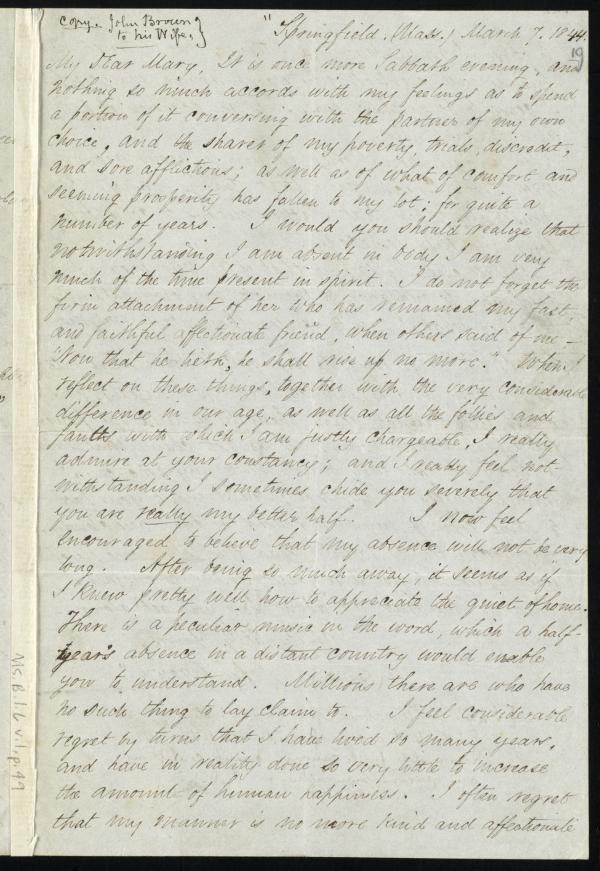 copy - John Brown
to his Wife, }
"Springfield, (Mass.) March 7, 1844.
19
My Dear Mary, It is once more Sabbath evening, and
nothing so much accords with my feelings as to spend
a portion of it conversing with the partner of my own
choice, and the sharer of my poverty, trials, discredit,
and sore afflictions; as well as of what of comfort and
seeming prosperity has fallen to my lot; for quite a
number of years. I would you should realize that
notwithstanding I am absent in body I am very
much of the time present in spirit. I do not forget the
firm attachment of her who has remained my fast
and faithful affectionate friend, when others said of me—
"Now that he lieth, he shall rise up no more." When I
reflect on these things, together with the very considerable
difference in our age, as well as all the follies and
faults with which I am justly chargeable, I really
admire at your constancy; and I really feel not-
withstanding I sometimes chide you severely that
you are really my better half. I now feel
encouraged to believe that my absence will not be very
long. After being so much away, it seems as if
I knew pretty well how to appreciate the quiet of home.
There is a peculiar music in the word, which a half-
year's absence in a distant country would enable
you to understand. Millions there are who have
no such thing to lay claim to. I feel considerable
regret by turns that I have lived so many years,
and have in reality done so very little to increase
the amount of human happiness. I often regret
that my manner is no more kind and affectionate
Ms. B. 1. 6 v. 1, p. 49